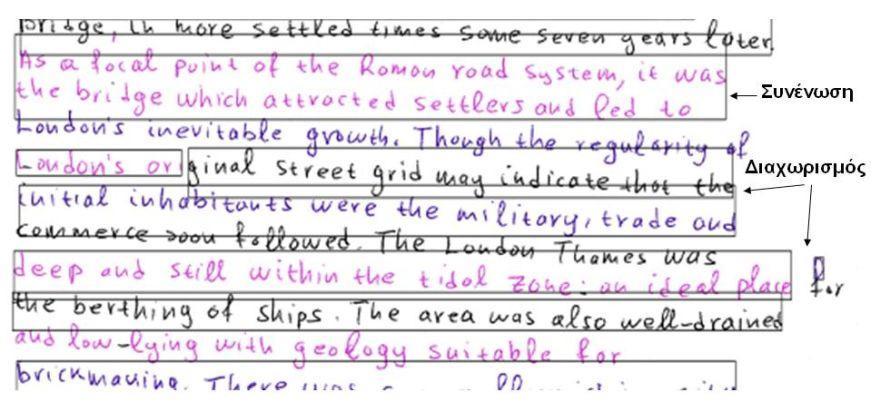 bridge, in more settled times some seven years later
As a focal point of the Roman road system, it was
the bridge which attracted settlers and led to
Συνένωση
London's inevitable growth. Though the regularity of
London's original street grid may indicate that the
Διαχωρισμός
initial inhabitants were the military, trade and
commerce soon followed. The London Thames was
deep and still within the tidal zone: an ideal place for
the berthing of ships. The area was also well-drained
and low-lying with geology suitable for
brickmaking. There was